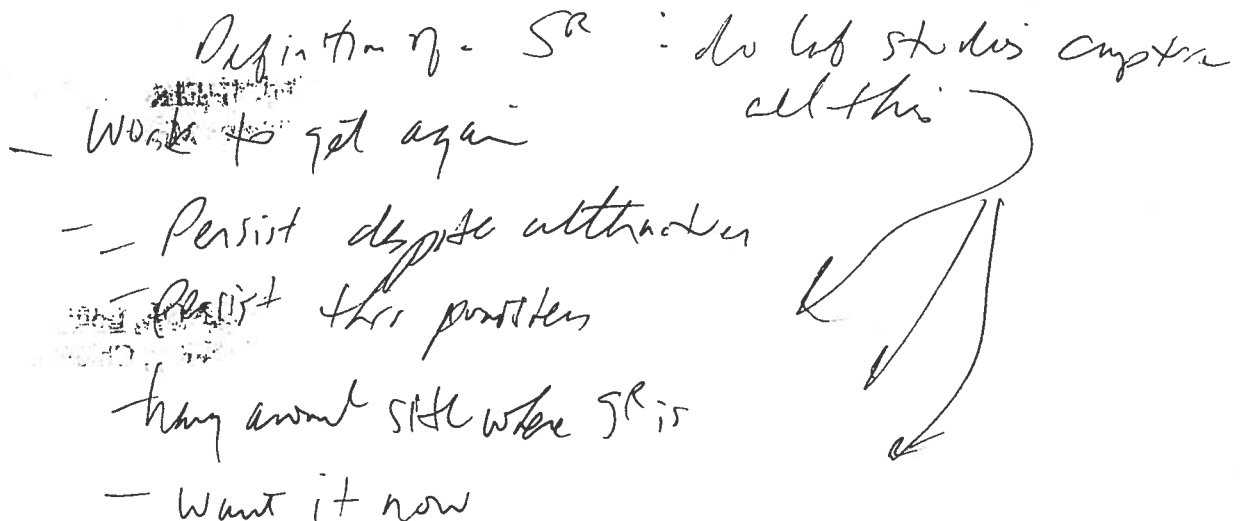 Definition of a S^R : do lab studies capture
all this
- Works to get again
- - Persist despite alternatives
- Persist thru punishers
- hang around site where S^R is
- Want it now